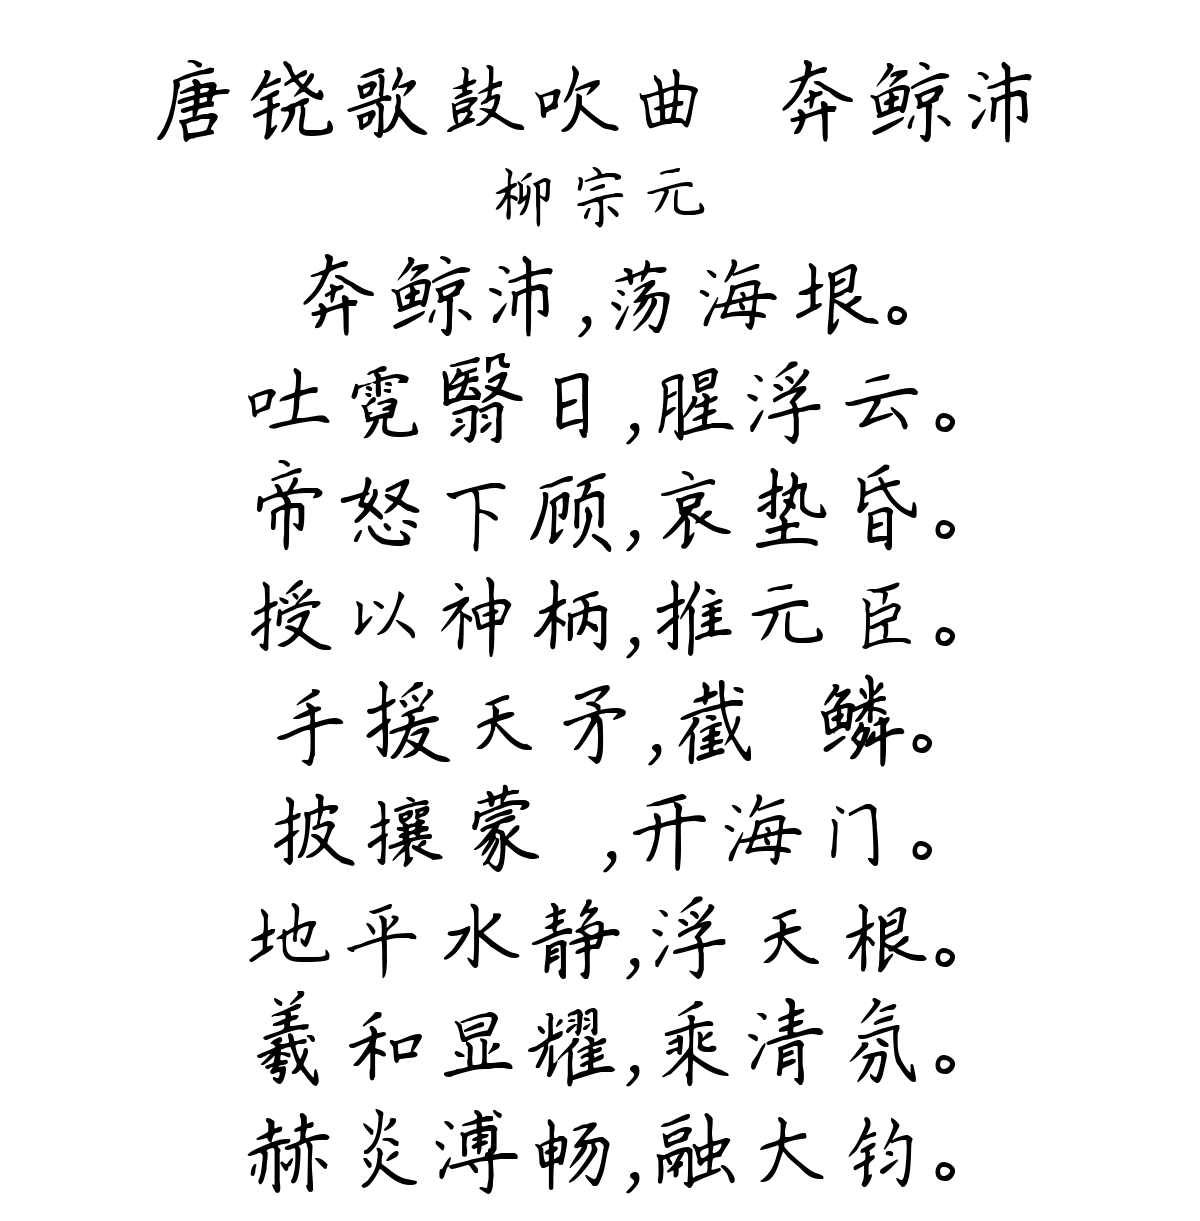 唐铙歌鼓吹曲 奔鲸沛
柳宗元
奔鲸沛,荡海垠。
吐霓翳日,腥浮云。
帝怒下顾,哀垫昏。
授以神柄,推元臣。
手援天矛,截 鳞。
披攘蒙 ,开海门。
地平水静,浮天根。
羲和显耀,乘清氛。
赫炎溥畅,融大钧。